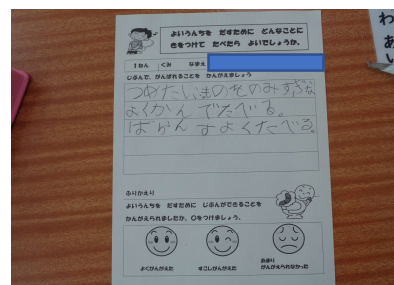 よいうんちを だすために どんなことに
きをつけて たべたら よいでしょうか。
1ねん くみ なまえ
じぶんで、がんばれることを かんがえましょう
つめたいものをのみすぎな
よくかんでたべる。
ばらんすよくたべる。
ふりかえり
よいうんちを だすために じぶんができることを
かんがえられましたか。○をつけましょう。
よくかんがえた
すこしかんがえた
あまり
かんがえられなかった
わ
あ
い